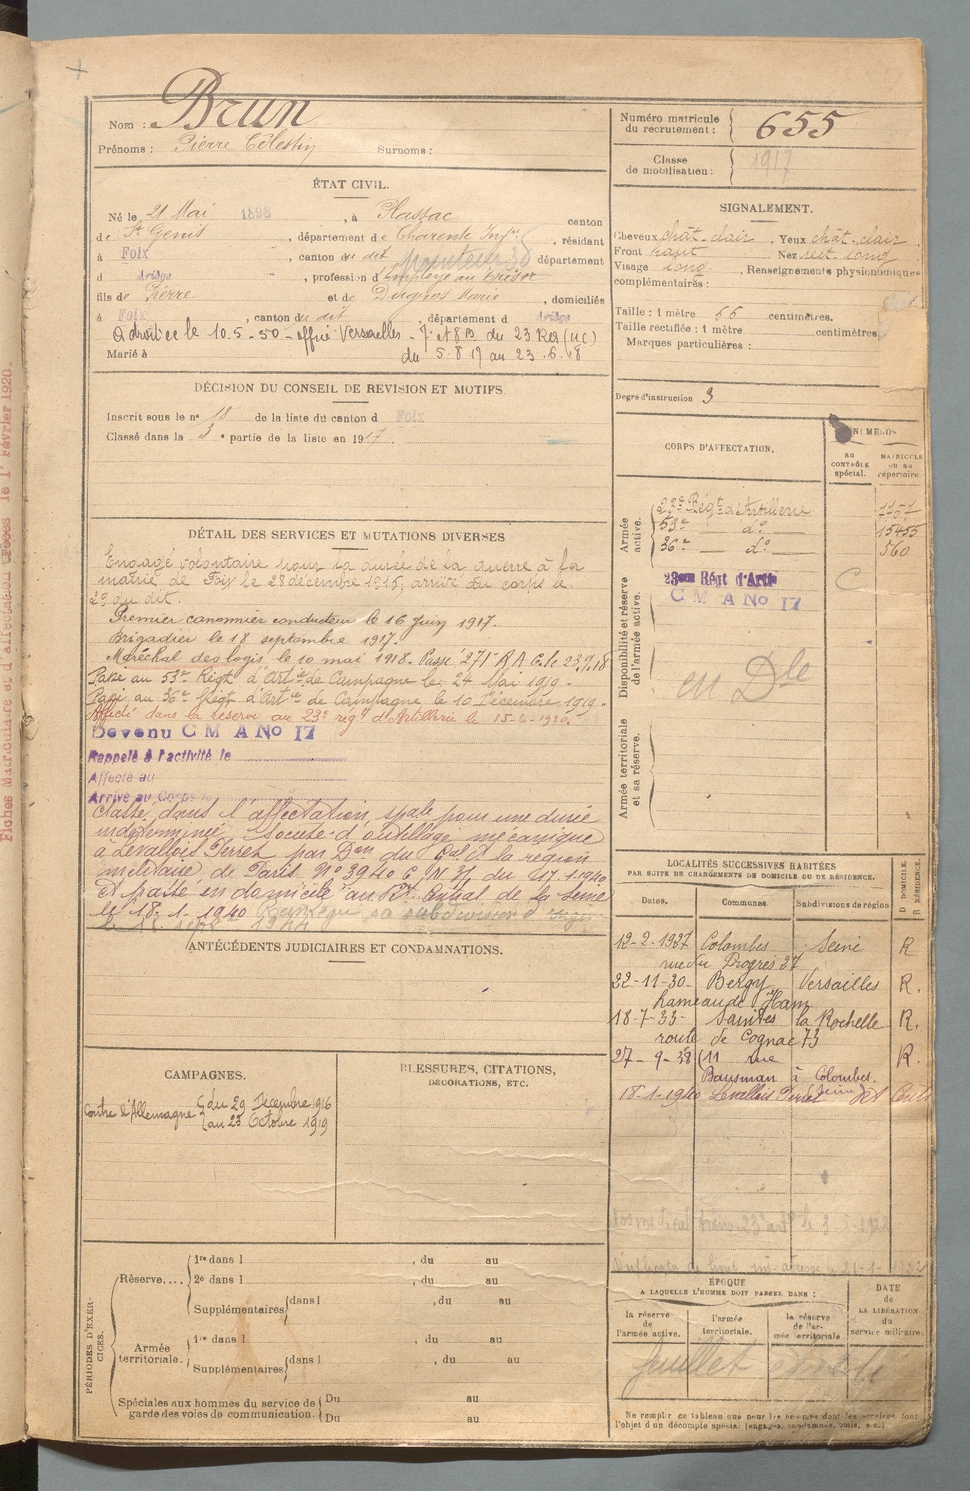 Fiches Matriculaire et d'affectation créées le 1er Février 1920.
Nom : Brun
Prénoms : Pierre Célestin Surnoms :
Numéro matricule du recrutement : 655
Classe de mobilisation : 1917
ÉTAT CIVIL.
Né le 21 Mai 1898, à Plassac canton
de St Genis, département de Charente Infre, résidant
à Foix, canton du dit département
d Ariège, profession d'Employé au trésor
fils de Pierre et de Marie, domiciliés
à Foix, canton du dit, département d Ariège
A droit ce le 10.5.50 Versailles 23 RA
du 5.8.17 au 23.6.18
Marié à
SIGNALEMENT.
Cheveux chât-clair, Yeux chât-clair
Front haut Nez rect. long
Visage long, Renseignements physionomiques
complémentaires :
Taille : 1 mètre 66 centimètres.
Taille rectifiée : 1 mètre centimètres
Marques particulières :
Degré d'instruction 3
DÉCISION DU CONSEIL DE REVISION ET MOTIFS.
Inscrit sous le n° 18 de la liste du canton d Foix
Classé dans la 3e partie de la liste en 1917.
DÉTAIL DES SERVICES ET MUTATIONS DIVERSES
Engagé volontaire pour la durée de la guerre à la
mairie de Foix le 28 décembre 1916, arrivé au corps le
29 du dit.
Premier canonnier conducteur le 16 Juin 1917.
Brigadier le 18 septembre 1917.
Maréchal des logis le 10 mai 1918. Passé 271e R A C. le 23.9.18
Passé au 53e Régt d'Artie de Campagne le 24 Mai 1919.
Passé au 36e Régt d'Artie de Campagne le 10 Décembre 1919.
Affecté dans la réserve au 23e régt d'Artillerie le 15-6-1920.
Devenu C M A No 17
Rappelé à l'activité le
Affecté au
Arrivé au Corps le
Classé dans l'affectation spale pour une durée
indéterminée, Société d'outillage mécanique
à Levallois Perret par Don du Gal Ct la région
militaire de Paris N° 3940 du 17-1-1940
et passe en domicile au Bt Central de la Seine
le 18-1-1940 sa subdivision d'origine
le sept 1944
CORPS D'AFFECTATION.
NUMÉROS
au contrôle spécial.
matricule ou au répertoire.
Armée active.
23e Régt d'Artillerie 1707
53e do 15455
36e do 560
Disponibilité et réserve de l'armée active.
23eme Régt d'Artie
C M A No 17
C
en Dle
Armée territoriale et sa réserve.
LOCALITÉS SUCCESSIVES HABITÉES
PAR SUITE DE CHANGEMENTS DE DOMICILE OU DE RÉSIDENCE.
D DOMICILE. R RÉSIDENCE.
Dates. Communes. Subdivisions de région
12-2-1927 Colombes Seine R
rue du Progrès 27
22-11-30 Versailles R.
hameau de Ham
18-7-33 Saintes la Rochelle R.
route de Cognac 73
27-9-38 (11 rue R.
Bausman à Colombes.
18-1-1940 Levallois Perret
ANTÉCÉDENTS JUDICIAIRES ET CONDAMNATIONS.
CAMPAGNES.
Contre l'Allemagne du 29 Décembre 1916
au 23 Octobre 1919
BLESSURES, CITATIONS, DÉCORATIONS, ETC.
PÉRIODES D'EXERCICES.
Réserve....
1re dans l , du au
2e dans l , du au
Supplémentaires dans l , du au
Armée territoriale.
1re dans l , du au
Supplémentaires dans l , du au
Spéciales aux hommes du service de garde des voies de communication.
Du au
Du au
ÉPOQUE
A LAQUELLE L'HOMME DOIT PASSER DANS :
la réserve de l'armée active.
l'armée territoriale.
la réserve de l'armée territoriale
DATE de LA LIBÉRATION du service militaire.
Ne remplir ce tableau que pour les hommes dont les services font
l'objet d'un décompte spécial (engagés, condamnés, omis, etc.)